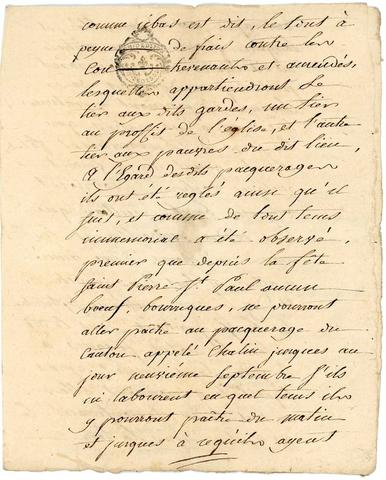 comme cebas est dit, le tout à
peyne de frais contre les
Contrevenants et amendés,
lesquelles appartiendront le
tier aux dits gardes, un tier
au proffit de l'église, et l'autre
tier aux pauvres du dit lieu,
& l'Egard desdits pacquerages
ils ont été reglés ainsi qu'il
suit, et comme de tout tems
immemorial a été observé,
premier que depuis la fête
Saint Pierre St. Paul aucun
boeuf, bourriques, ne pourront
aller paître au pacquerage du
Canton appelé Chalin jusques au
jour neuvième Septembre s'ils
labourent en quel tems ils
y pourront paître du matin
et jusques à ayent